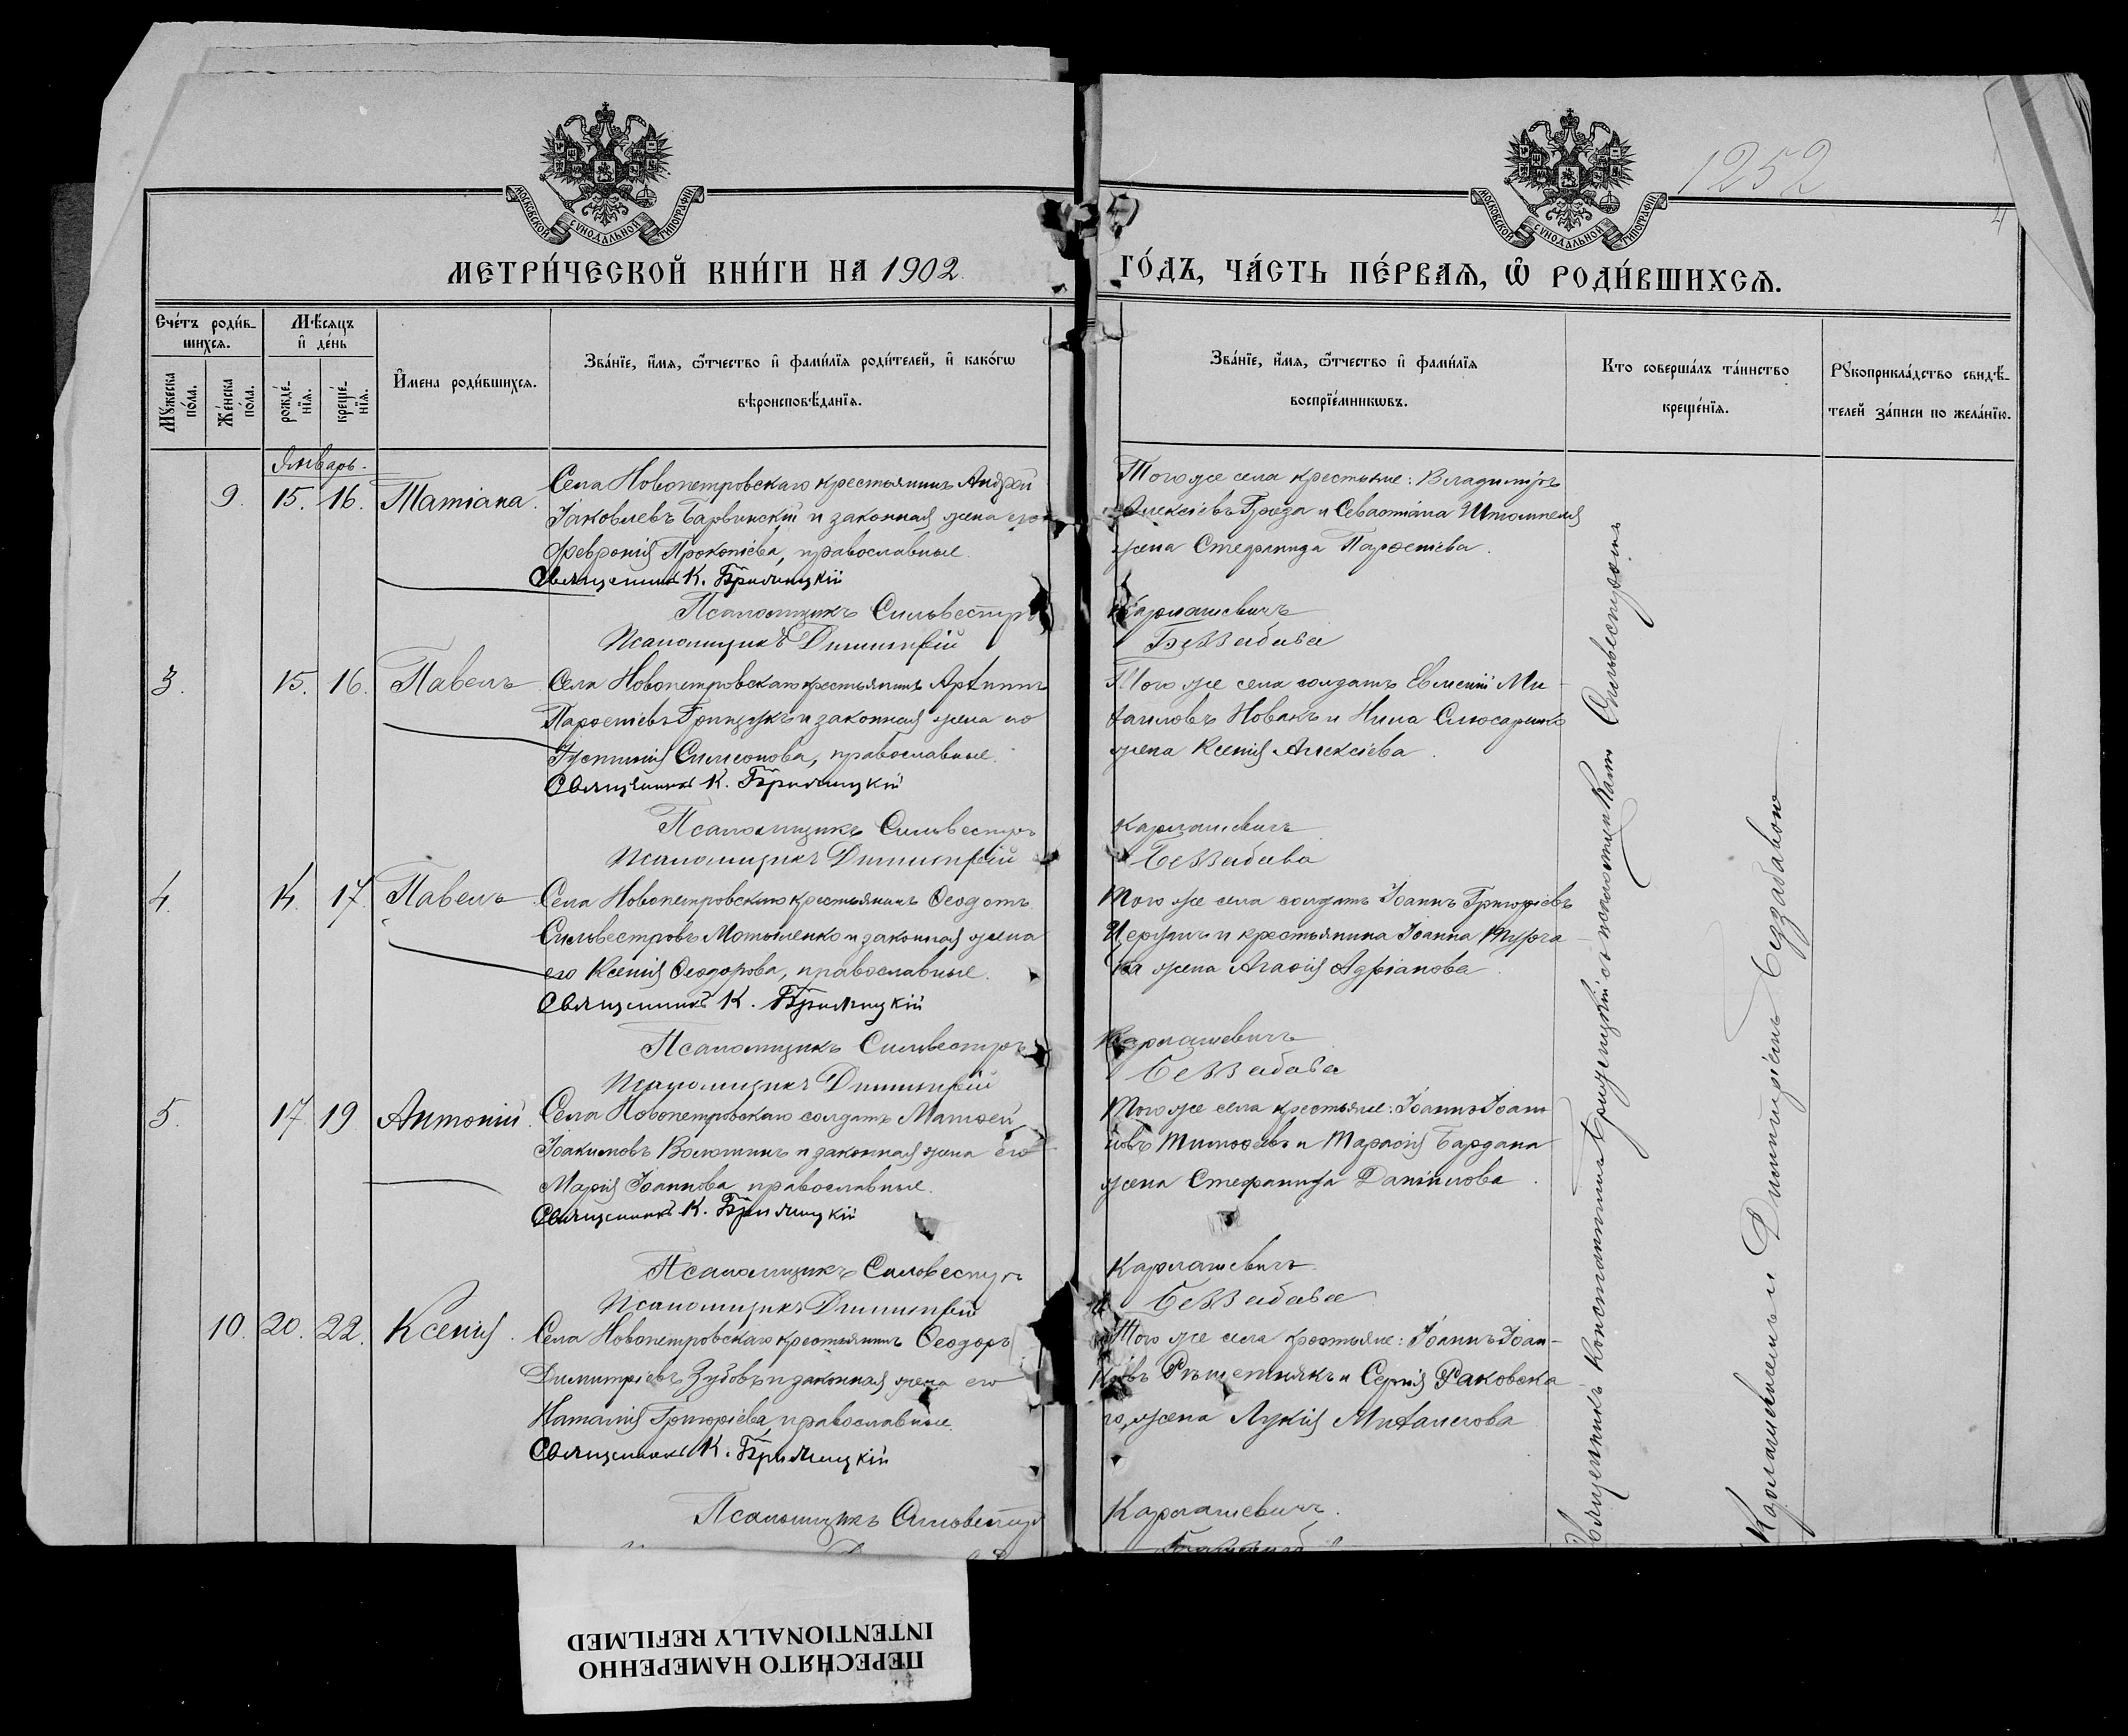 1252
4
МОСКОВСКОЙ СѴНОДАЛЬНОЙ ТИПОГРАФІИ
МОСКОВСКОЙ СѴНОДАЛЬНОЙ ТИПОГРАФІИ
МЕТРИ́ЧЕСКОЙ КНИ́ГИ НА 1902
ГО́ДЪ, ЧА́СТЬ ПЕ́РВАѦ, Ѽ РОДИ́ВШИХСѦ.
Сче́тъ роди́в-
шихсѧ.
Мꙋ́жеска по́ла.
Же́нска по́ла.
Мѣ́сѧцъ и҆ де́нь
рожде́-
нїѧ.
креще́-
нїѧ.
И҆мена̀ роди́вшихсѧ.
Зва́нїе, и҆́мѧ, ѻ҆́тчество и҆ фами́лїѧ роди́телей, и҆ како́гѡ
вѣроисповѣ́данїѧ.
Зва́нїе, и҆́мѧ, ѻ҆́тчество и҆ фами́лїѧ
воспрїе́мникѡвъ.
Кто соверша́лъ та́инство
креще́нїѧ.
Рꙋкоприкла́дство свидѣ́-
телей за́писи по жела́нїю.
Январь.
9. 15. 16. Татіана.
Села Новопетровскаго крестьянинъ Андрей
Іаковлевъ Барвинскій и законная жена его
Февронія Прокопіева, православные.
Священникъ К. Брилицкій
Псаломщикъ Сильвестръ
Псаломщикъ Димитрій
Того же села крестьяне: Владиміръ
Алексіевъ и Севастіана
жена Стефанида Парѳеніева.
Кармашевичъ
Беззабава
3. 15. 16. Павелъ
Села Новопетровскаго крестьянинъ
Парѳеніевъ Грищукъ и законная жена его
Іустинія Симеонова, православные.
Священникъ К. Брилицкій
Псаломщикъ Сильвестръ
Псаломщикъ Димитрій
Того же села солдатъ Евменій Ми-
хаиловъ Новакъ и Нила Слюсаренко
жена Ксенія Алексіева.
Кармашевичъ
Беззабава
4. 14. 17. Павелъ
Села Новопетровскаго крестьянинъ Ѳеодотъ
Сильвестровъ Мотыленко и законная жена
его Ксенія Ѳеодорова, православные.
Священникъ К. Брилицкій
Псаломщикъ Сильвестръ
Псаломщикъ Димитрій
Того же села солдатъ Іоаннъ Григоріевъ
и крестьянина Іоанна
жена Агаѳія Адріанова.
Кармашевичъ
Беззабава
5. 17. 19. Антоній.
Села Новопетровскаго солдатъ Матѳей
Іоакимовъ Волошинъ и законная жена его
Марія Іоаннова, православные.
Священникъ К. Брилицкій
Псаломщикъ Сильвестръ
Псаломщикъ Димитрій
Того же села крестьяне: Іоаннъ Іоан-
новъ и Бардана
жена Стефанида Даніилова.
Кармашевичъ
Беззабава
10. 20. 22. Ксенія.
Села Новопетровскаго крестьянинъ Ѳеодоръ
Димитріевъ Зубовъ и законная жена его
Наталія Григоріева, православные.
Священникъ К. Брилицкій
Псаломщикъ Сильвестръ
Того же села крестьяне: Іоаннъ Іоан-
новъ Рѣшетнякъ и Сергія Раковска
го жена Лукія Михаилова
Кармашевичъ.
Священникъ Константинъ съ псаломщиками Сильвестромъ
Кармашевичемъ и Димитріемъ Беззабавою
ПЕРЕСНЯТО НАМЕРЕННО
INTENTIONALLY REFILMED